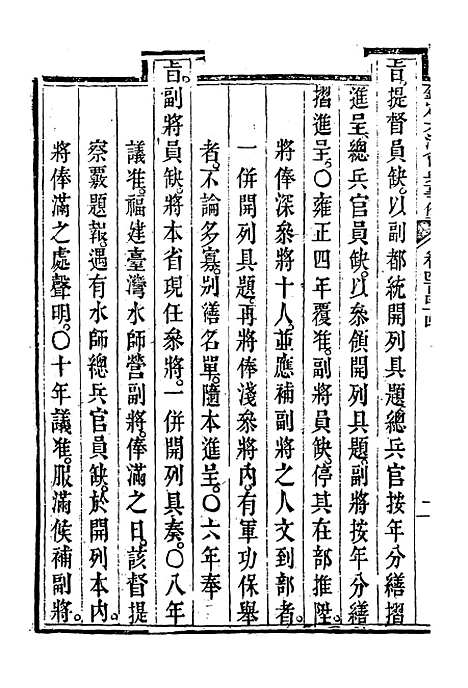 旨提督員缺以副都統開列具題總兵官按年分繕摺
進呈總兵官員缺以參領開列具題副將按年分繕
摺進呈〇雍正四年覆准副將員缺停其在部推陞
將俸深參將十人並應補副將之人文到部者
一併開列具題再將俸淺參將內有軍功保舉
者不論多寡別繕名單隨本進呈〇六年奉
旨副將員缺將本省現任參將一併開列具奏〇八年
議准福建臺灣水師營副將俸滿之日該督提
察覈題報遇有水師總兵官員缺於開列本內
將俸滿之處聲明〇十年議准服滿候補副將